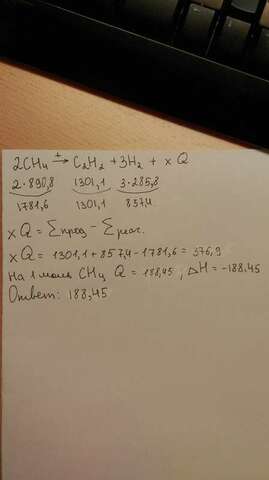 2CH₄ →ᵗ C₂H₂ + 3H₂ + xQ
2·890,8 1301,1 3·285,8
1781,6 1301,1 857,4
xQ = ∑прод - ∑реаг.
xQ = 1301,1 + 857,4 - 1781,6 = 376,9
На 1 моль CH₄ Q = 188,45 ; ΔH = -188,45
Ответ: 188,45